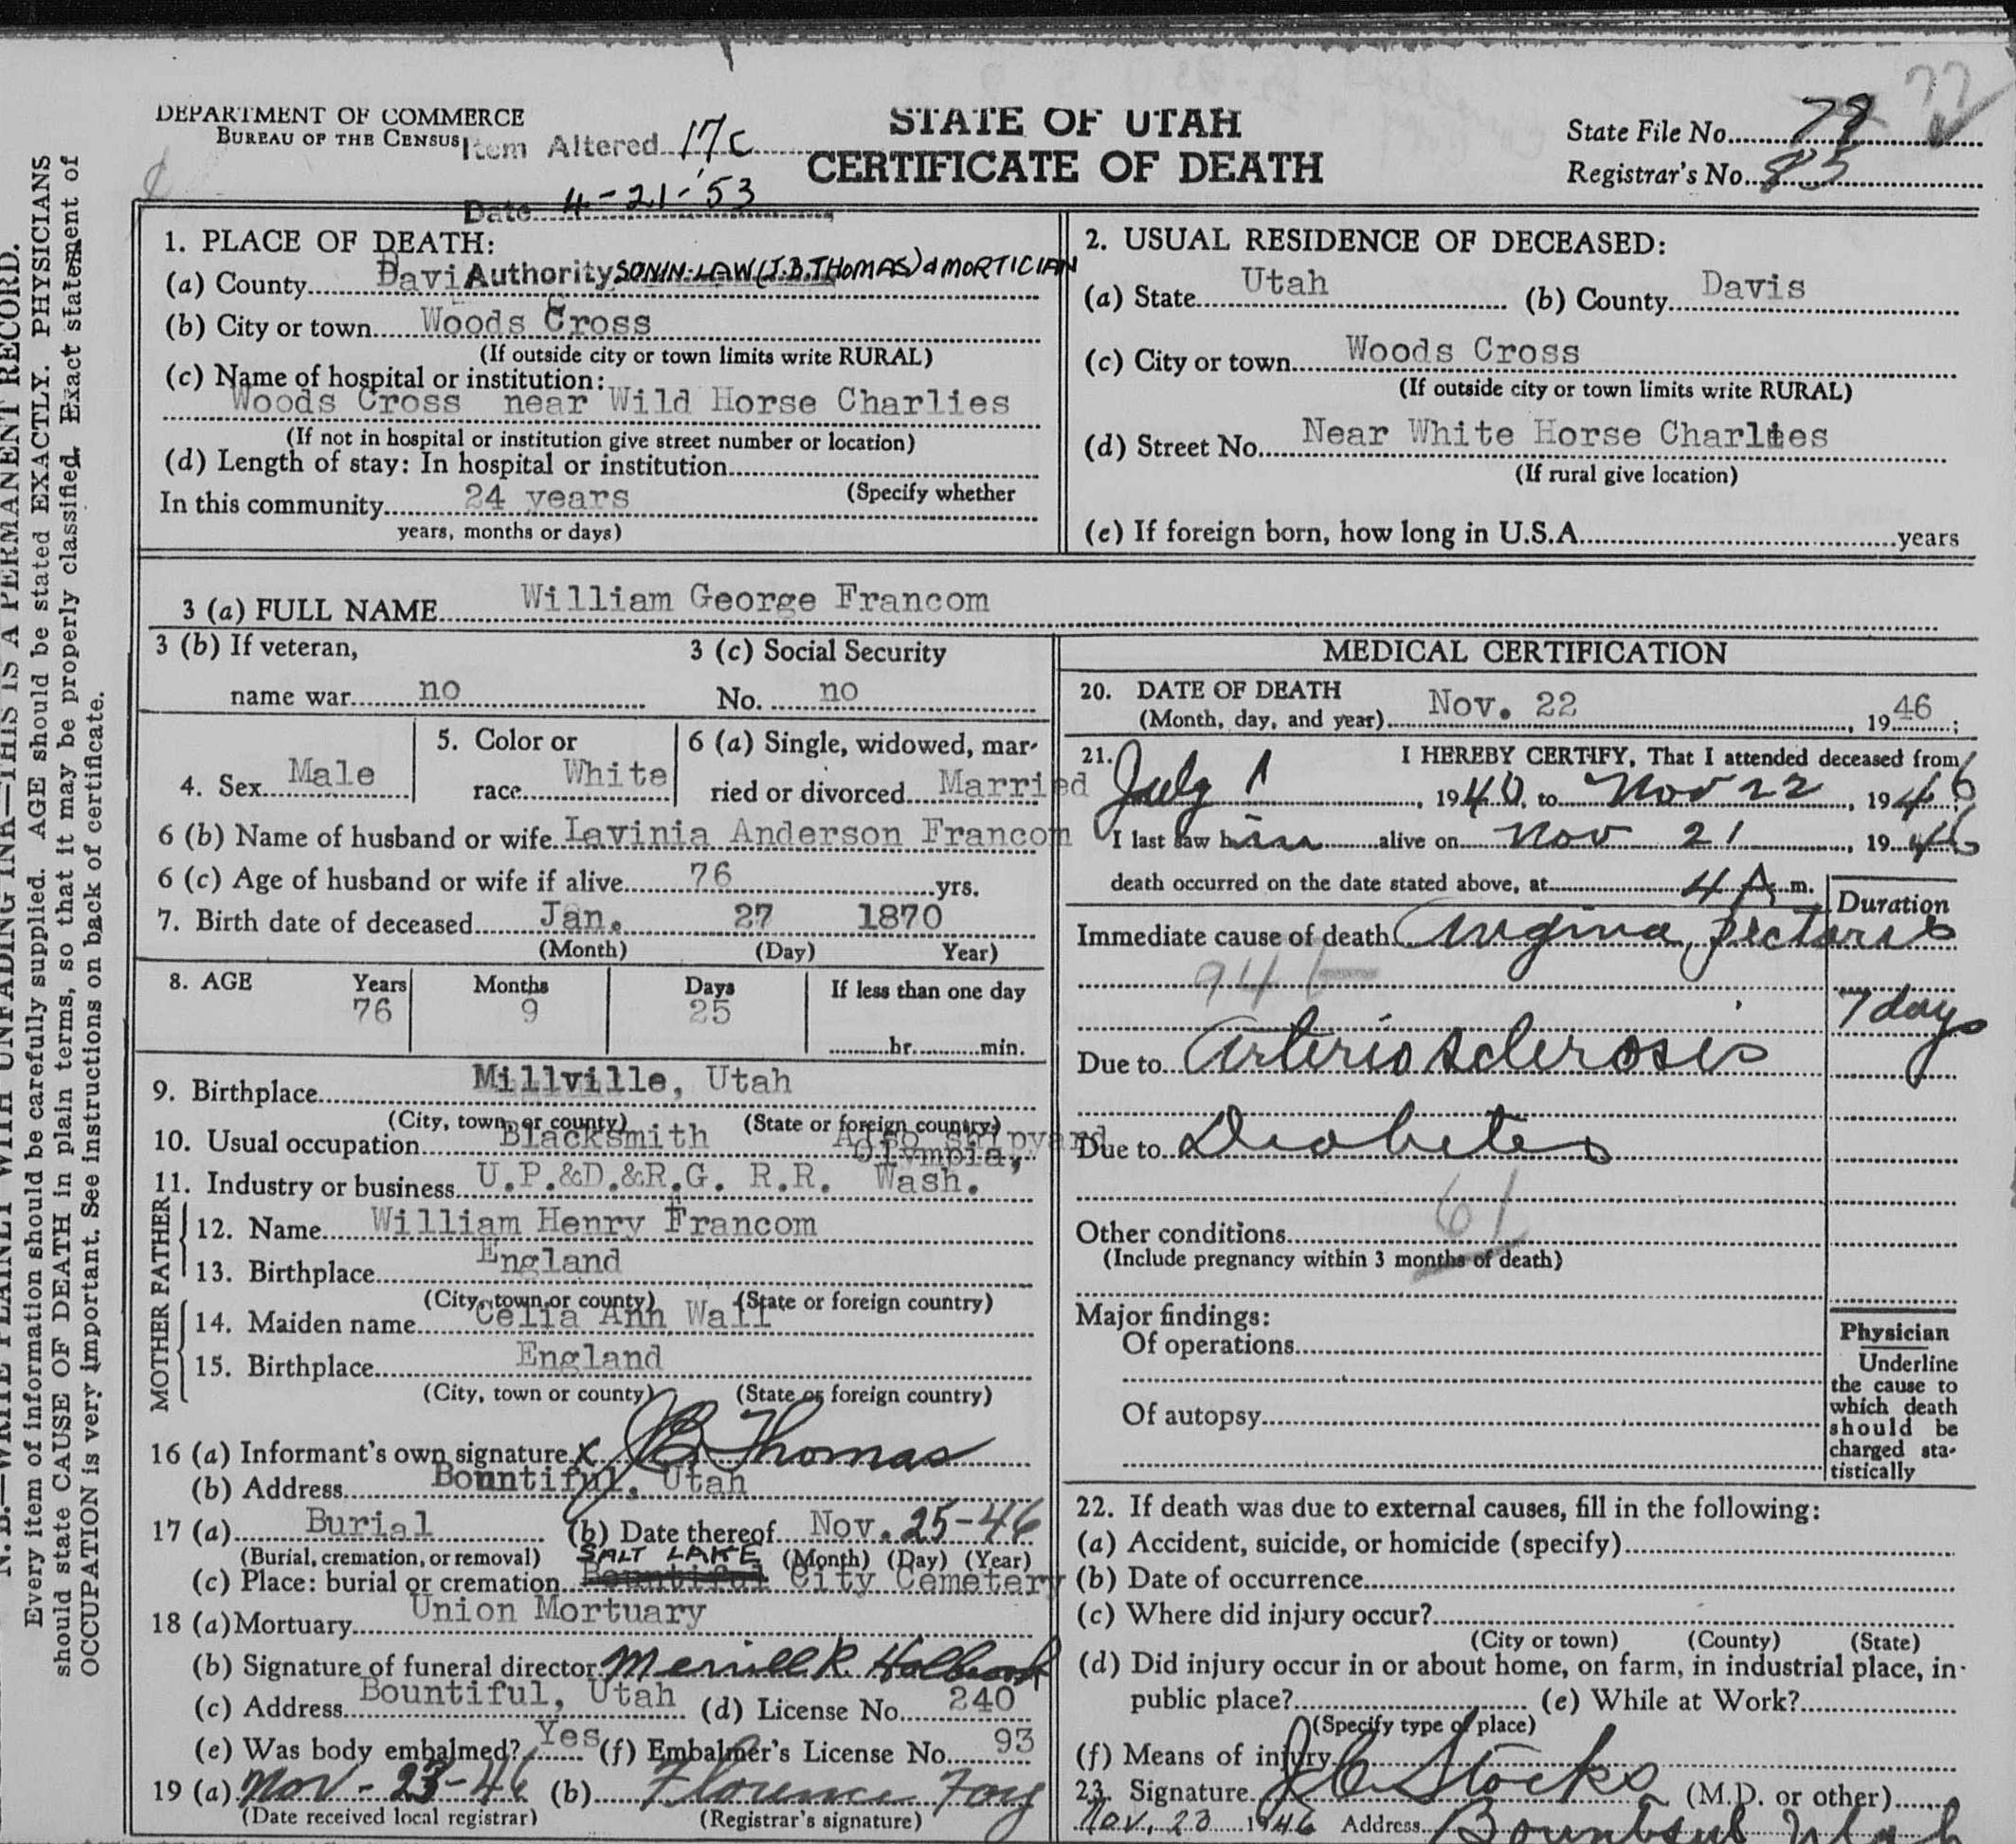 DEPARTMENT OF COMMERCE
BUREAU OF THE CENSUS
Item Altered 17c
Date 4-21-'53
Authority SON IN-LAW (J.B. THOMAS) & MORTICIAN
STATE OF UTAH
CERTIFICATE OF DEATH
State File No. 78
77
Registrar's No. 85
N. B.—WRITE PLAINLY WITH UNFADING INK—THIS IS A PERMANENT RECORD.
Every item of information should be carefully supplied. AGE should be stated EXACTLY. PHYSICIANS
should state CAUSE OF DEATH in plain terms, so that it may be properly classified. Exact statement of
OCCUPATION is very important. See instructions on back of certificate.
1. PLACE OF DEATH:
(a) County Davi
(b) City or town Woods Cross
(If outside city or town limits write RURAL)
(c) Name of hospital or institution:
Woods Cross near Wild Horse Charlies
(If not in hospital or institution give street number or location)
(d) Length of stay: In hospital or institution
(Specify whether
In this community 24 years
years, months or days)
2. USUAL RESIDENCE OF DECEASED:
(a) State Utah (b) County Davis
(c) City or town Woods Cross
(If outside city or town limits write RURAL)
(d) Street No. Near White Horse Charlies
(If rural give location)
(e) If foreign born, how long in U.S.A. years
3 (a) FULL NAME William George Francom
3 (b) If veteran,
name war no
3 (c) Social Security
No. no
4. Sex Male
5. Color or
race White
6 (a) Single, widowed, mar-
ried or divorced Married
6 (b) Name of husband or wife Lavinia Anderson Francom
6 (c) Age of husband or wife if alive 76 yrs.
7. Birth date of deceased Jan. 27 1870
(Month) (Day) Year)
8. AGE Years Months Days If less than one day
76 9 25
hr. min.
9. Birthplace Millville, Utah
(City, town, or county) (State or foreign country)
10. Usual occupation Blacksmith Also shipyard
Olympia,
11. Industry or business U.P.&D.&R.G. R.R. Wash.
FATHER
12. Name William Henry Francom
13. Birthplace England
(City, town or county) (State or foreign country)
MOTHER
14. Maiden name Celia Ann Wall
15. Birthplace England
(City, town or county) (State or foreign country)
16 (a) Informant's own signature X J B Thomas
(b) Address Bountiful, Utah
17 (a) Burial (b) Date thereof Nov. 25-46
(Burial, cremation, or removal) (Month) (Day) (Year)
SALT LAKE
(c) Place: burial or cremation Bountiful City Cemetery
18 (a) Mortuary Union Mortuary
(b) Signature of funeral director Merrill R. Holbrook
(c) Address Bountiful, Utah (d) License No. 240
(e) Was body embalmed? Yes (f) Embalmer's License No. 93
19 (a) Nov-23-46 (b) Florence Foy
(Date received local registrar) (Registrar's signature)
MEDICAL CERTIFICATION
20. DATE OF DEATH
(Month, day, and year) Nov. 22, 1946;
21. I HEREBY CERTIFY, That I attended deceased from
July 1, 1940, to Nov 22, 1946;
I last saw him alive on Nov 21, 1946
death occurred on the date stated above, at 4 A m.
Duration
Immediate cause of death Angina pectoris
94 b
7 days
Due to Arteriosclerosis
Due to Diabetes
61
Other conditions
(Include pregnancy within 3 months of death)
Major findings:
Of operations
Of autopsy
Physician
Underline
the cause to
which death
should be
charged sta-
tistically
22. If death was due to external causes, fill in the following:
(a) Accident, suicide, or homicide (specify)
(b) Date of occurrence
(c) Where did injury occur?
(City or town) (County) (State)
(d) Did injury occur in or about home, on farm, in industrial place, in
public place? (e) While at Work?
(Specify type of place)
(f) Means of injury
23. Signature J C Stocks (M.D. or other)
Nov. 23 1946 Address Bountiful Utah